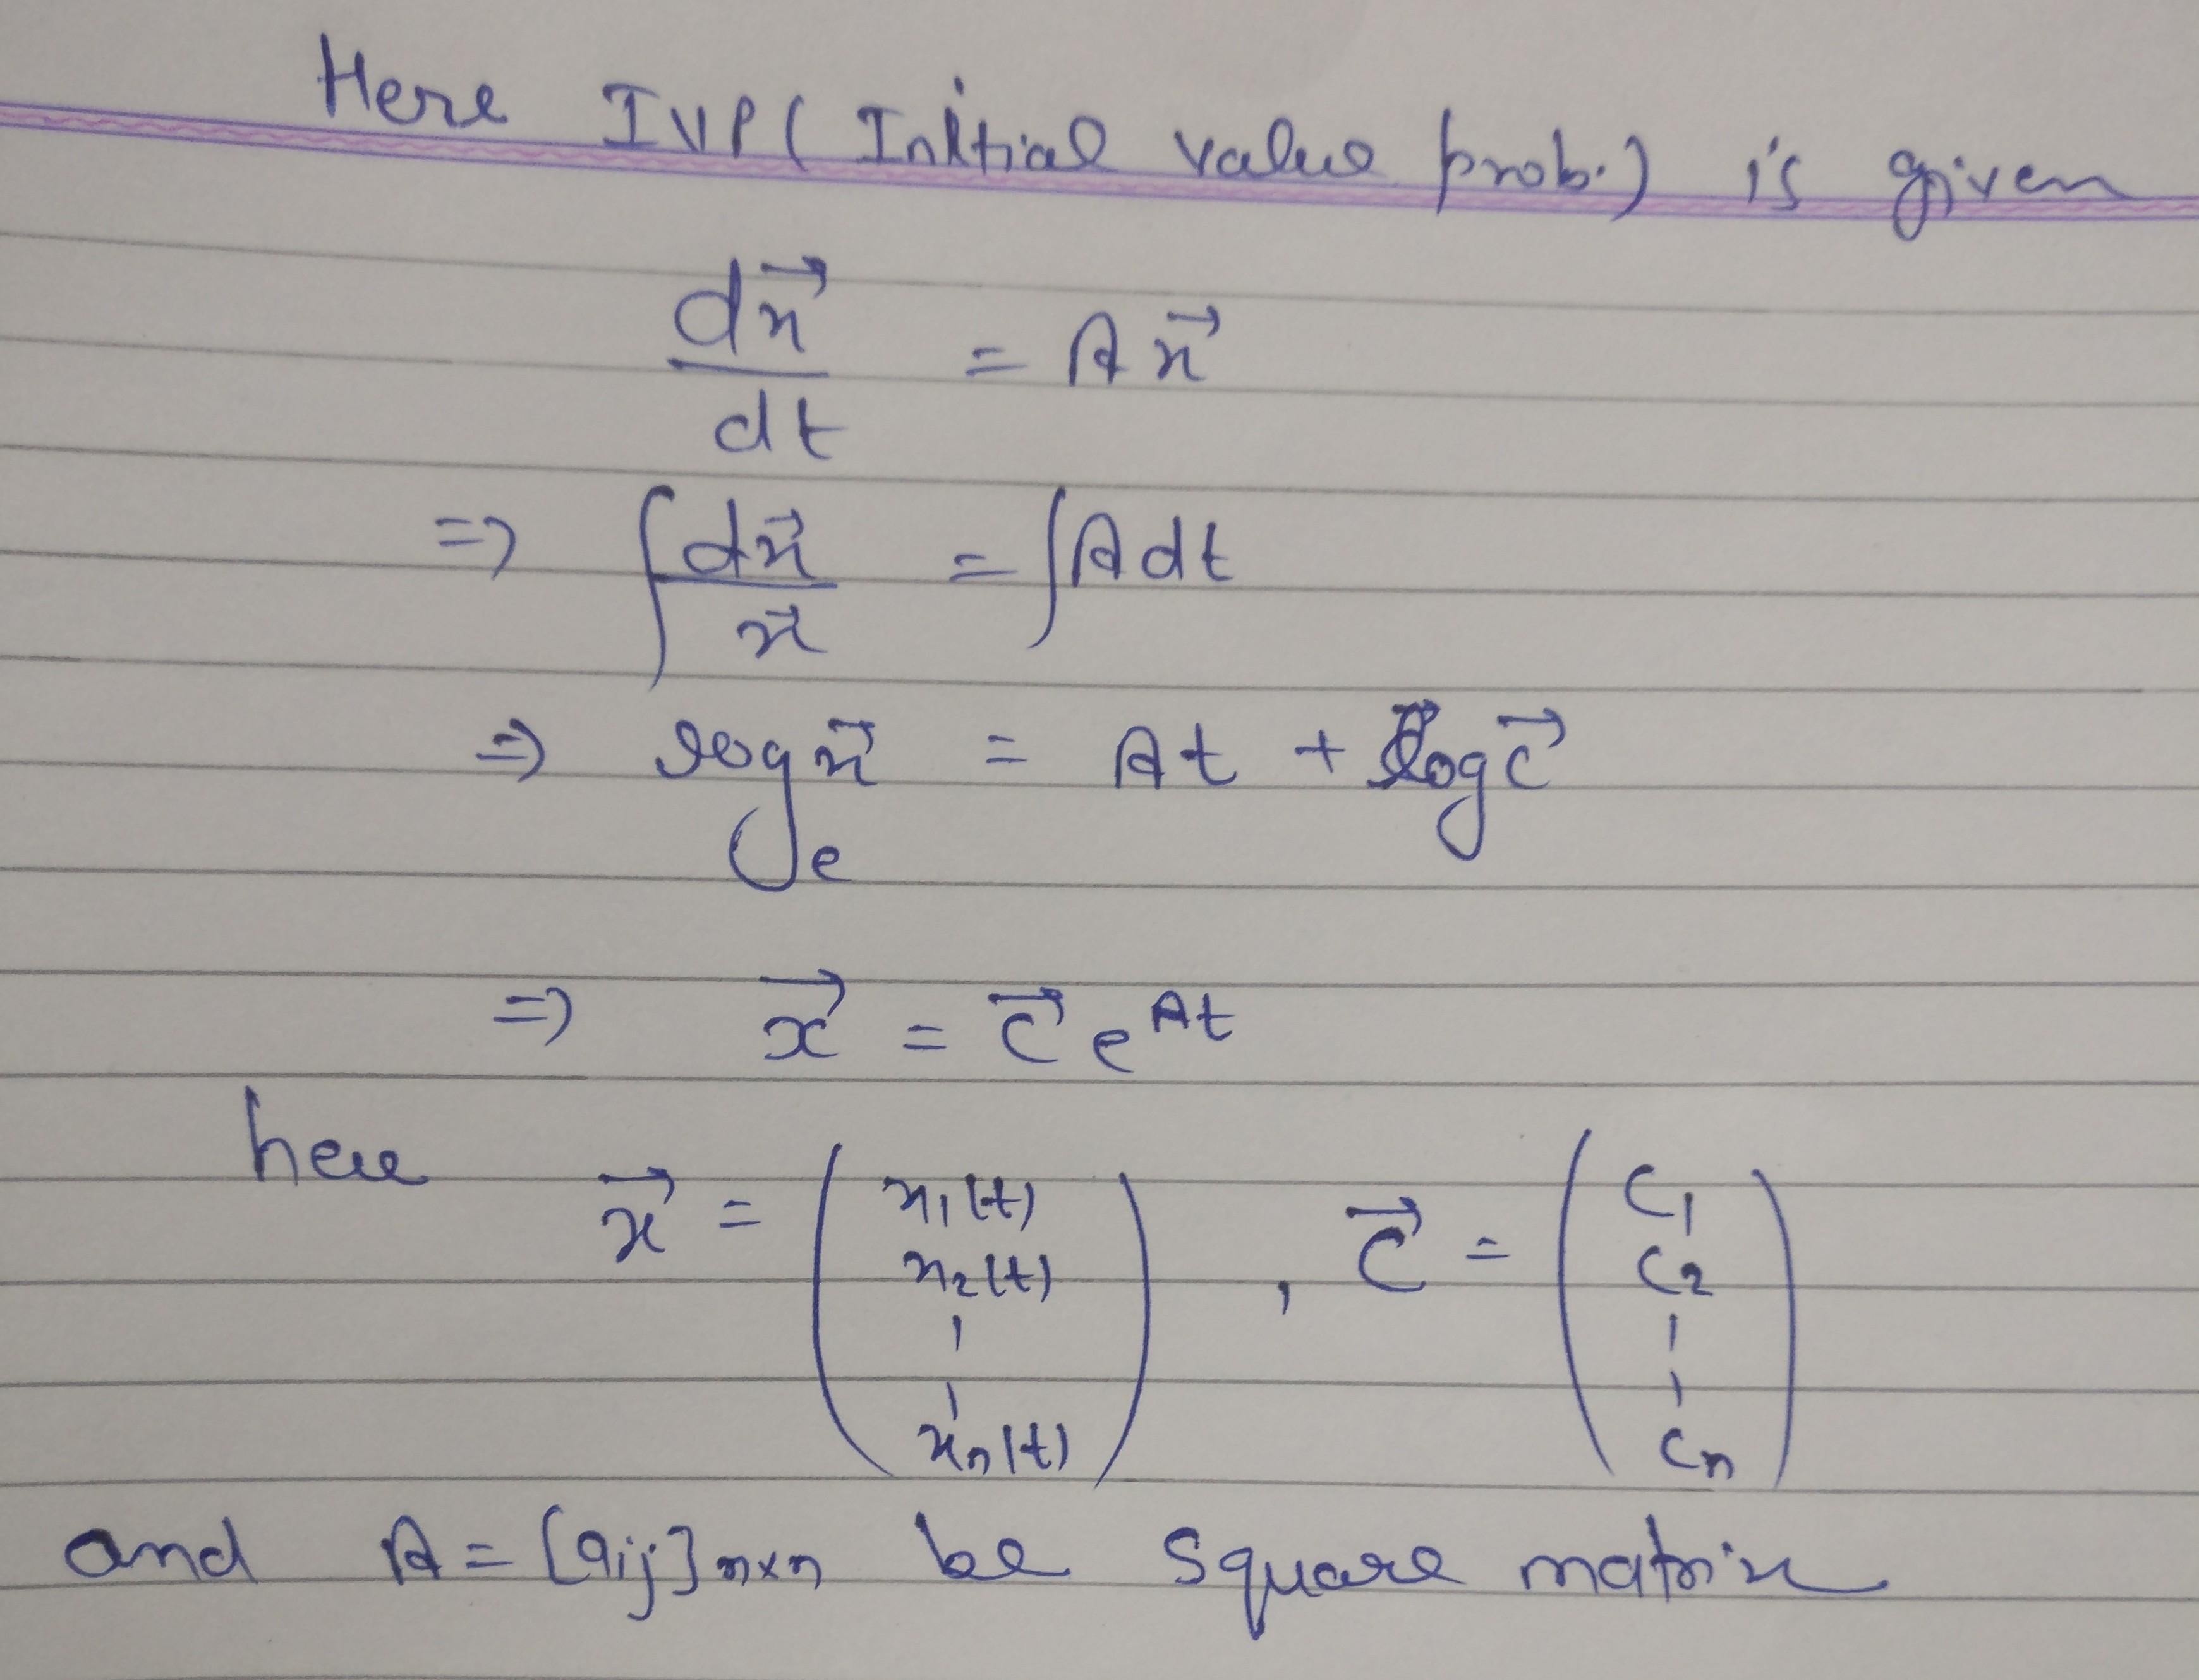 Here IVP ( Initial value prob.) is given
dx⃗/dt = A x⃗
=> ∫ dx⃗/x⃗ = ∫ A dt
=> logₑ x⃗ = At + log c⃗
=> x⃗ = c⃗ e^{At}
here x⃗ = ( x₁(t) x₂(t) ¦ xₙ(t) ) , c⃗ = ( c₁ c₂ ¦ cₙ )
and A = [aij]n×n be square matrix